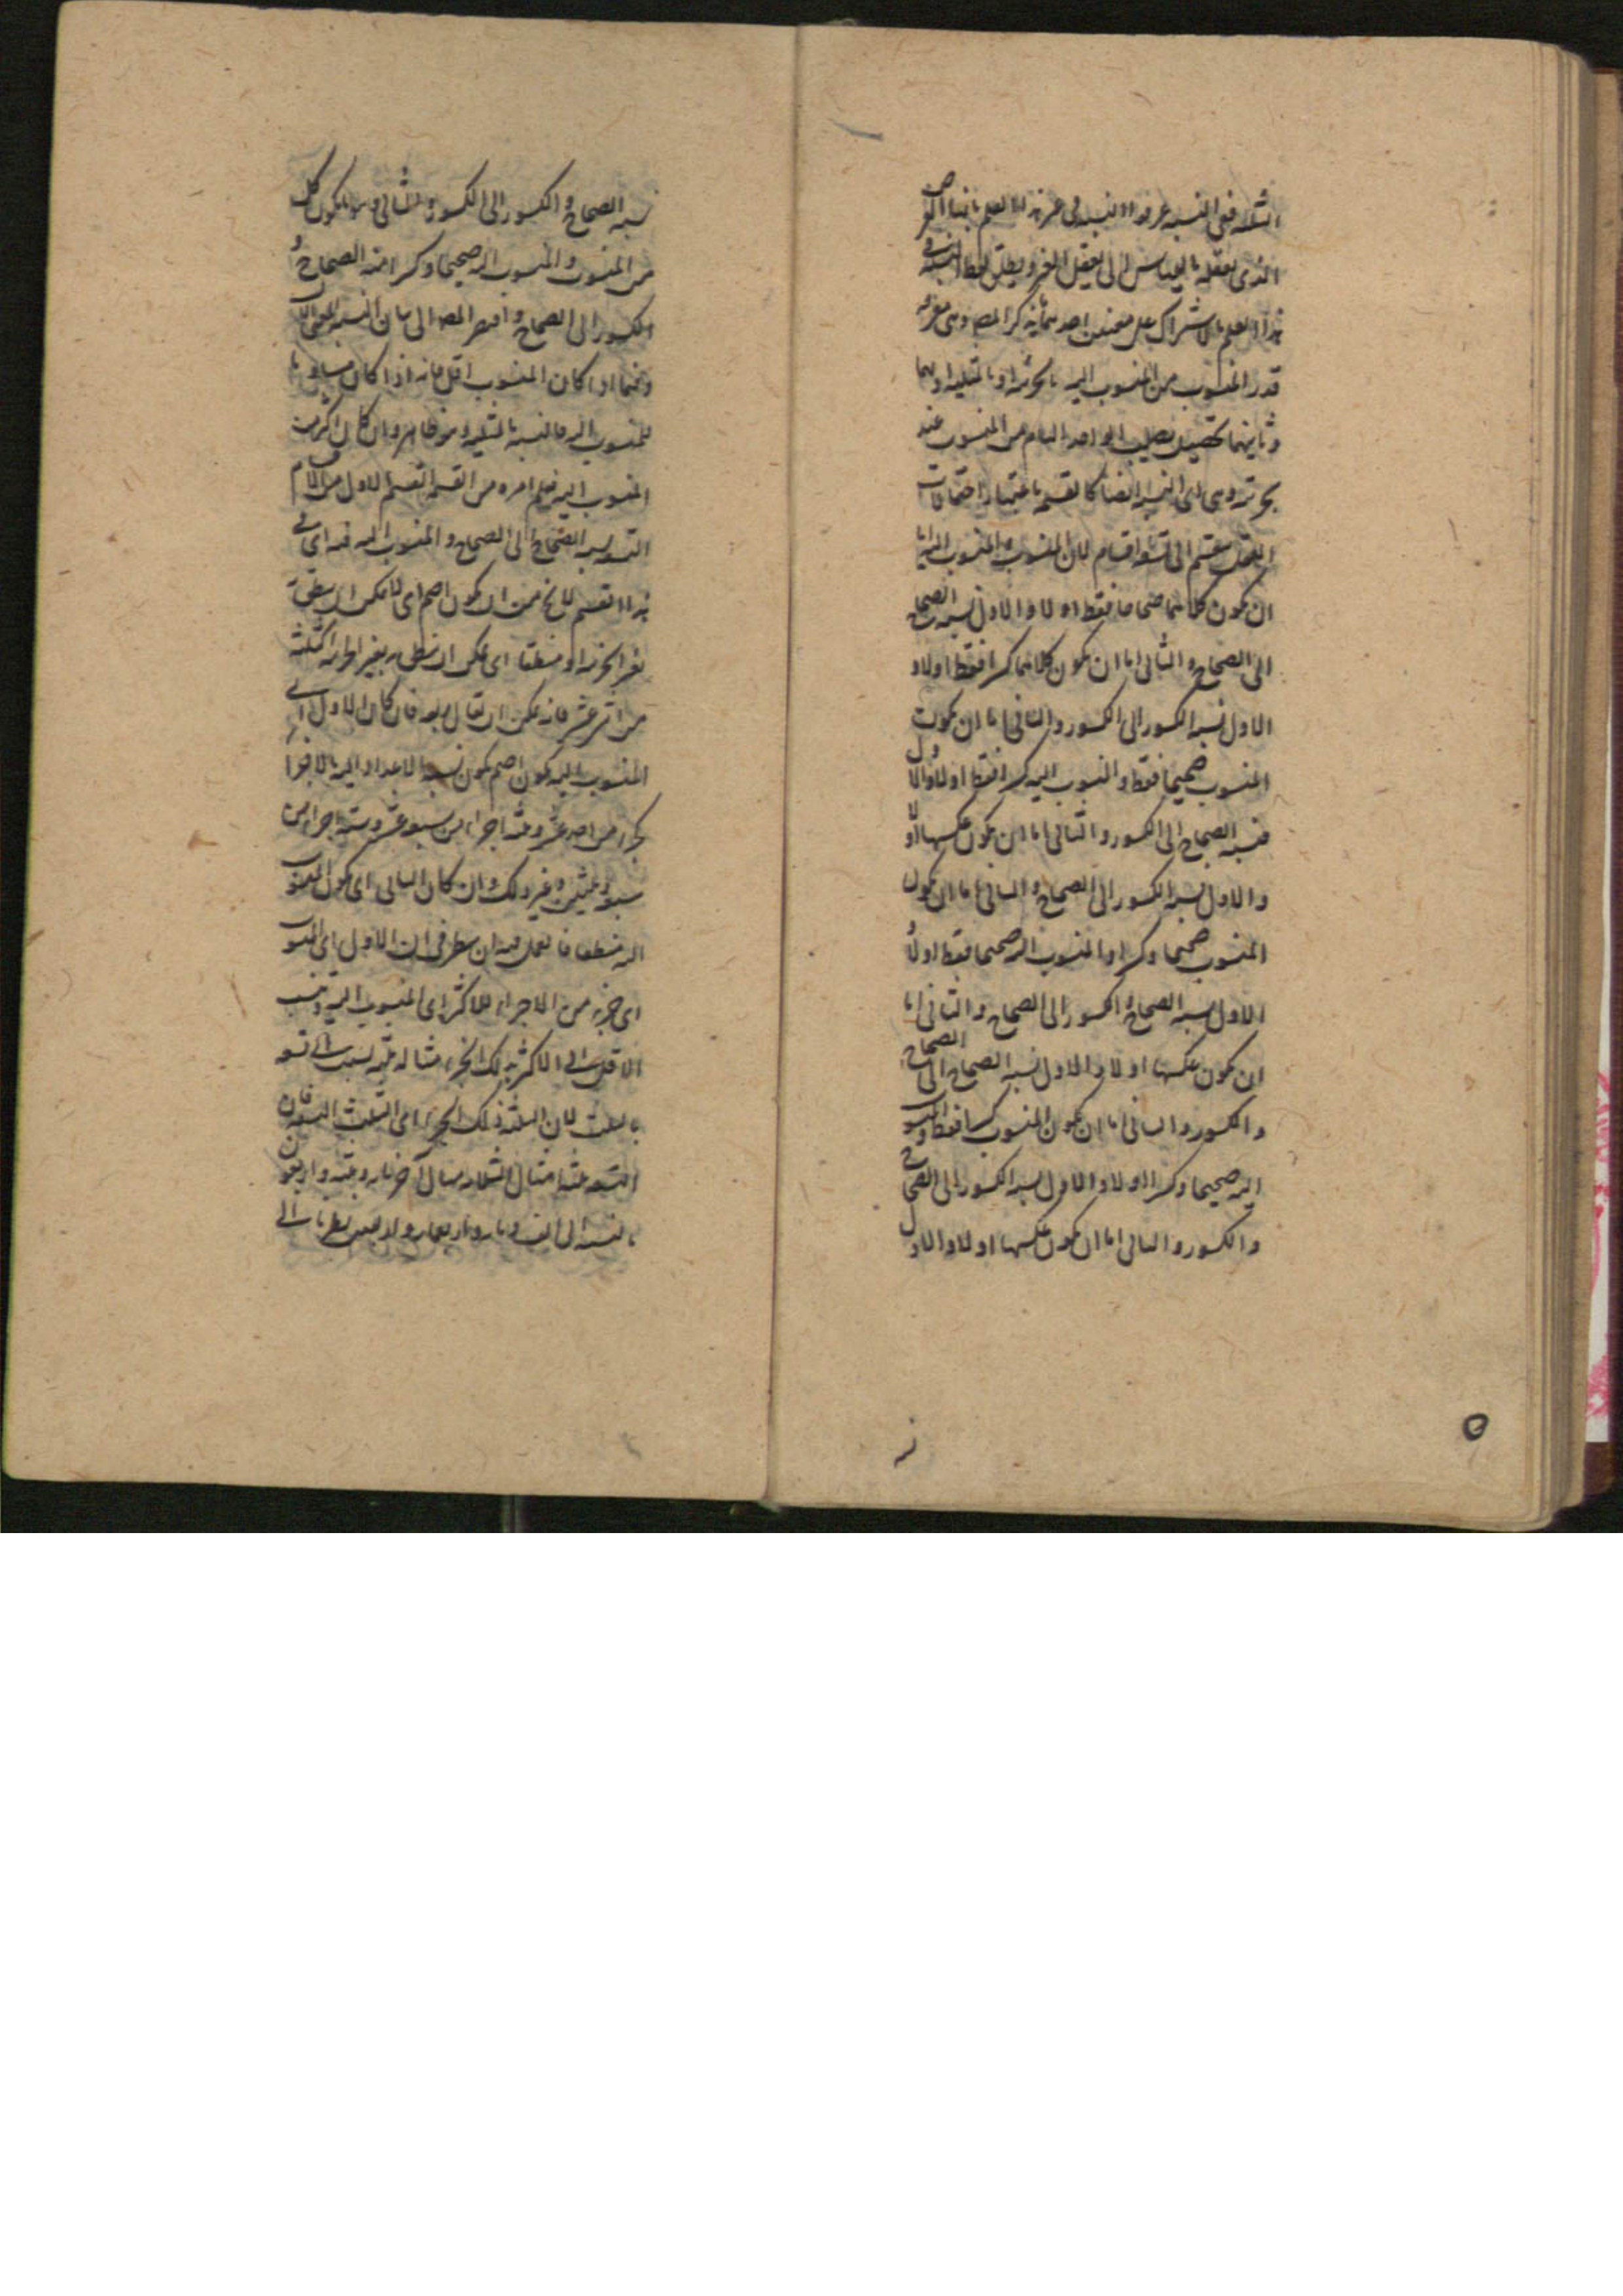 الثلثه فى النسبه عرفوا النسبه فى عرف هذا العلم بانها
الذى تعقله بالقياس الى تعقل الغير ويطلق لفظ النسبة فى
هذا العلم بالاشتراك على معنيين احدهما ما ذكر المص وهى معرفة
قدر المنسوب من المنسوب اليه بالجزئية او بالمثلية او بهما
وثانيهما تحصيل نصيب الواحد التام من المنسوب عند
تجزئته وهى اى النسبة ايضا كالقسمه باعتبار احتمالات
العقل ينقسم الى تسعة اقسام لان المنسوب والمنسوب اليه اما
ان يكون كلاهما صحاحا فقط اولا والاول نسبه الصحاح
الى الصحاح والثانى اما ان يكون كلاهما كسرا فقط اولا و
الاول نسبه الكسور الى الكسور والثانى اما ان يكون
المنسوب صحيحا فقط والمنسوب اليه كسرا فقط اولا والاول
نسبه الصحاح الى الكسور والثانى اما ان يكون عكسها اولا
والاول نسبه الكسور الى الصحاح والثانى اما ان يكون
المنسوب صحيحا وكسرا والمنسوب اليه صحيحا فقط اولا و
الاول نسبه الصحاح والكسور الى الصحاح والثانى اما
ان يكون عكسها اولا والاول نسبه الصحاح الى الصحاح
والكسور والثانى اما ان يكون المنسوب كسرا فقط والمنسوب
اليه صحيحا وكسرا اولا والاول نسبه الكسور الى الصحاح
والكسور والثانى اما ان يكون عكسها اولا والاول
نسبه الصحاح والكسور الى الكسور والثانى وهو ما يكون كل
من المنسوب والمنسوب اليه صحيحا وكسرا نسبة الصحاح و
الكسور الى الصحاح و اقتصر المص الى بيان النسبه
وفيما اذا كان المنسوب اقل فانه اذا كان مساويا
للمنسوب اليه فالنسبه بالمثلية وهو ظاهر وان كان اكثر من
المنسوب اليه فيعلم امره من القسمة القسم الاول من الاقسام
التسعة نسبه الصحاح الى الصحاح والمنسوب اليه فيه اى فى
هذا القسم لا يخ من ان يكون اصم اى لا يمكن ان ينطق به
بغير الجزئية او منطقا اى يمكن ان ينطق به بغير الجزئية كثلثة
من اثنى عشر فانه يمكن ان يقال ربعه فان كان الاول اى
المنسوب اليه يكون اصم يكون نسبة الاعداد اليه بالاجزا
كجزء من احد عشر وثلثة اجزاء من سبعة عشر وستة اجزاء من
سبعة وثلثين وغير ذلك وان كان الثانى اى يكون المنسوب
اليه منطقا فالعمل فيه ان ينظر فى ان الاول اى المنسوب
اى جزء من الاجزاء للاكثر اى المنسوب اليه وتنسب
الاقل الى الاكثر بذلك الجزء مثاله ثلثة نسبت الى تسعة
بالثلث لان الثلثة ذلك الجزء اى الثلث للتسعة فان
التسعة ثلثة امثال الثلثة مثال آخر